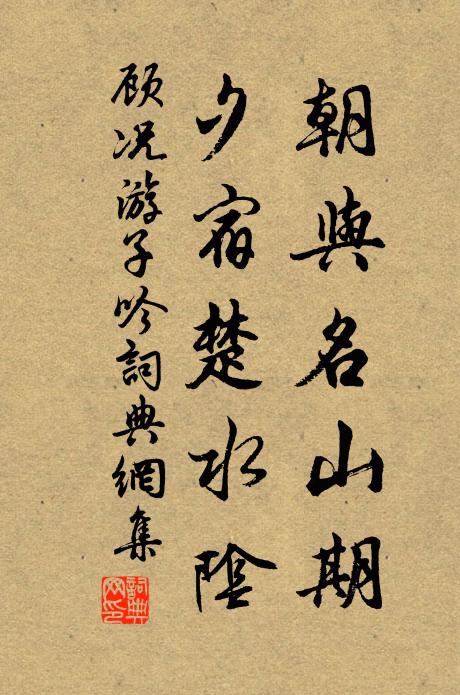 朝與名山期
夕宿楚水陰
顾况游子吟詞典網集
詞典网印